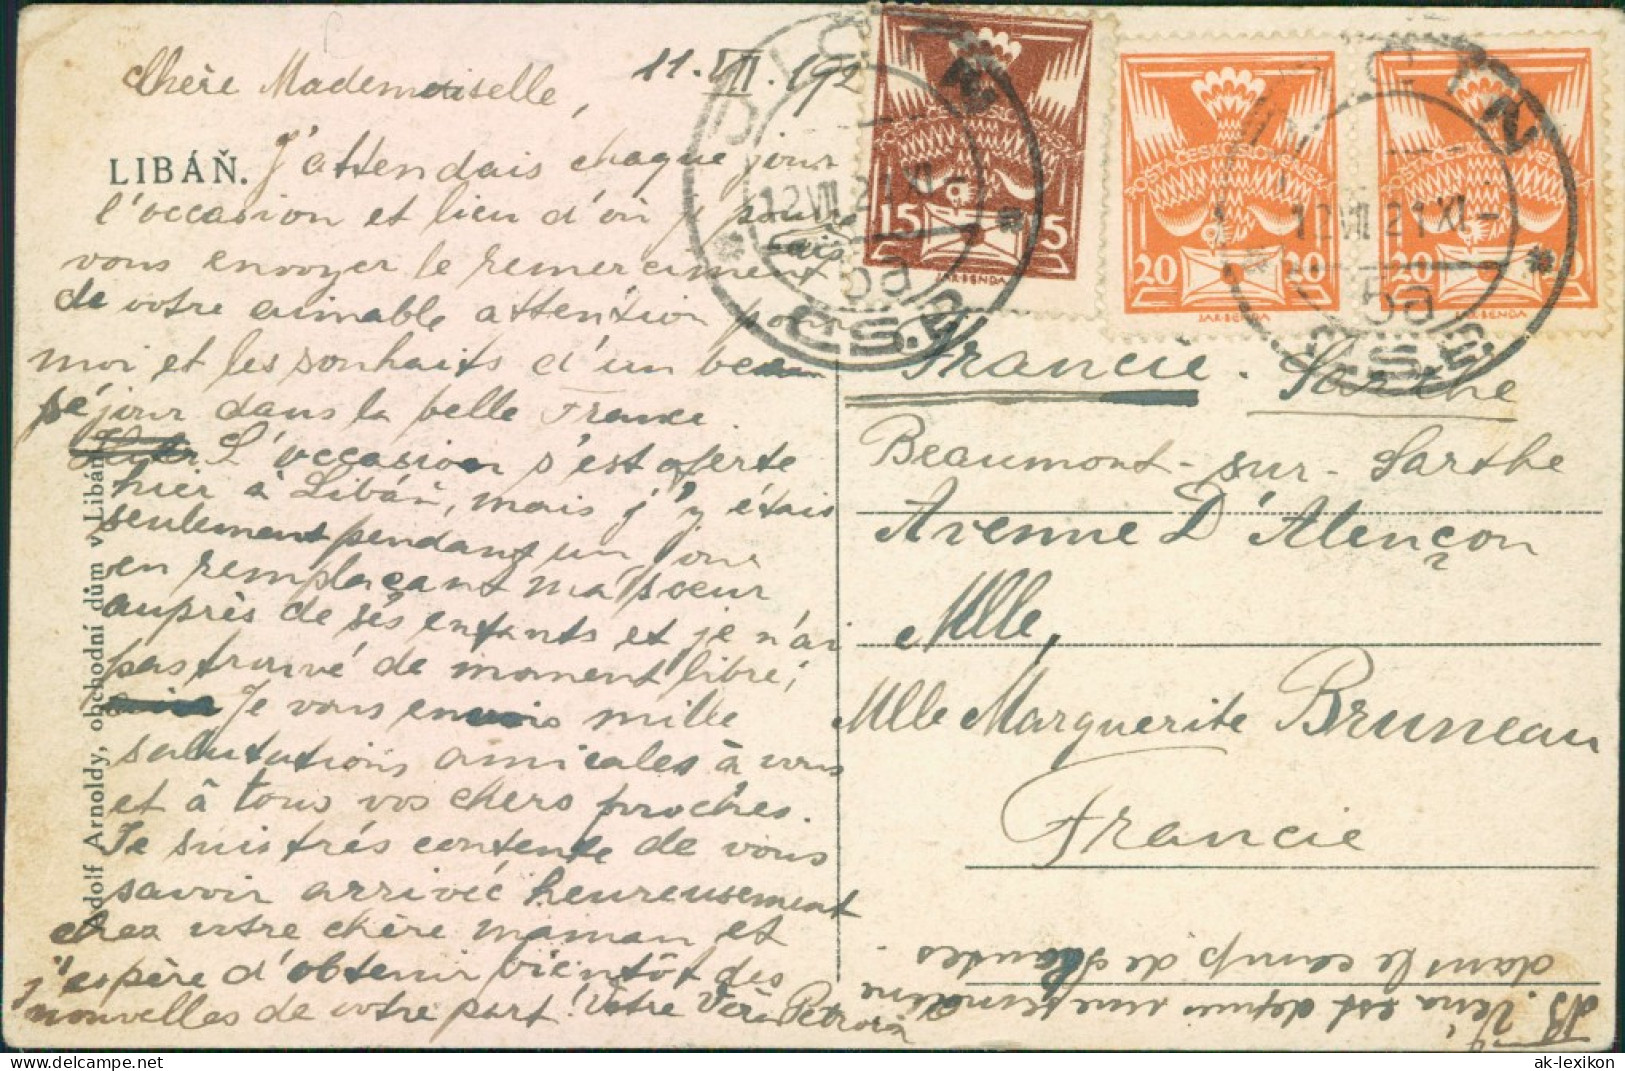 Chère Mademoiselle,
11. VII. 192
LIBÁŇ.
J'attendais chaque jour
l'occasion et lieu d'où je pour
rais
vous envoyer le remerciment
de votre aimable attention pour
moi et les souhaits d'un beau
séjour dans la belle France.
L'occasion s'est oferte
hier à Libáň, mais j'y étais
seulement pendant un jour
en remplaçant ma soeur
auprès de ses enfants et je n'ai
pas trouvé de moment libre;
Je vous envois mille
salutations amicales à vous
et à tous vos chers proches.
Je suis très contente de vous
savoir arrivée heureusement
chez votre chère maman et
j'espère d'obtenir bientôt des
nouvelles de votre part! Votre Věra Petrová
Adolf Arnoldy, obchodní dům v Libáni
JIČÍN
12 VII 21 XI-
5a
ČS.
POŠTA ČESKOSLOVENSKÁ
15 15
JAR·BENDA
JIČÍN
12 VII 21 XI-
5a
ČS.
POŠTA ČESKOSLOVENSKÁ
20 20
JAR·BENDA
POŠTA ČESKOSLOVENSKÁ
20 20
JAR·BENDA
Francie. Sarthe
Beaumont-sur-Sarthe
Avenue D'Alençon
Mlle,
Mlle Marguerite Bruneau
Francie
NB. Věra est depuis une semaine
dans le camp de
ak-lexikon